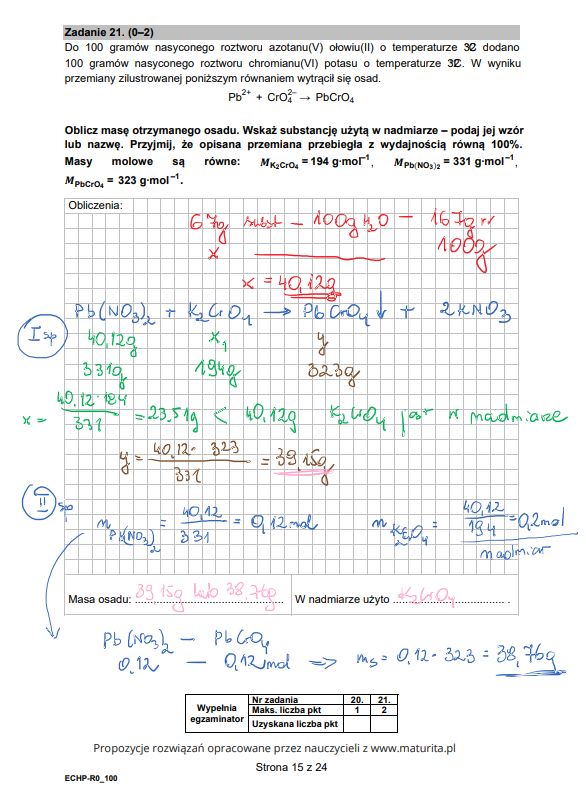 Zadanie 21. (0–2)
Do 100 gramów nasyconego roztworu azotanu(V) ołowiu(II) o temperaturze dodano
100 gramów nasyconego roztworu chromianu(VI) potasu o temperaturze W wyniku
przemiany zilustrowanej poniższym równaniem wytrącił się osad.
Pb²⁺ + CrO₄²⁻ → PbCrO₄
Oblicz masę otrzymanego osadu. Wskaż substancję użytą w nadmiarze – podaj jej wzór
lub nazwę. Przyjmij, że opisana przemiana przebiegła z wydajnością równą 100%.
Masy molowe są równe: M K₂CrO₄ = 194 g·mol⁻¹, M Pb(NO₃)₂ = 331 g·mol⁻¹,
M PbCrO₄ = 323 g·mol⁻¹.
Obliczenia:
67g subst – 100g H₂O – 167g
x 100g
x = 40,12g
Pb(NO₃)₂ + K₂CrO₄ → PbCrO₄↓ + 2KNO₃
I sp
40,12g x₁ y
331g 194g 323g
x = 40,12·194 / 331 = 23,51g < 40,12g K₂CrO₄ jest w nadmiarze
y = 40,12· 323 / 331 = 39,15g
II sp
n Pb(NO₃)₂ = 40,12 / 331 = 0,12 mol n K₂CrO₄ = 40,12 / 194 = 0,2 mol
nadmiar
Masa osadu: 39,15g lub 38,76g W nadmiarze użyto K₂CrO₄
Pb(NO₃)₂ – PbCrO₄
0,12 – 0,12 mol ⇒ ms = 0,12 · 323 = 38,76g
Wypełnia egzaminator Nr zadania 20. 21.
Maks. liczba pkt 1 2
Uzyskana liczba pkt
Propozycje rozwiązań opracowane przez nauczycieli z www.maturita.pl
Strona 15 z 24
ECHP-R0_100